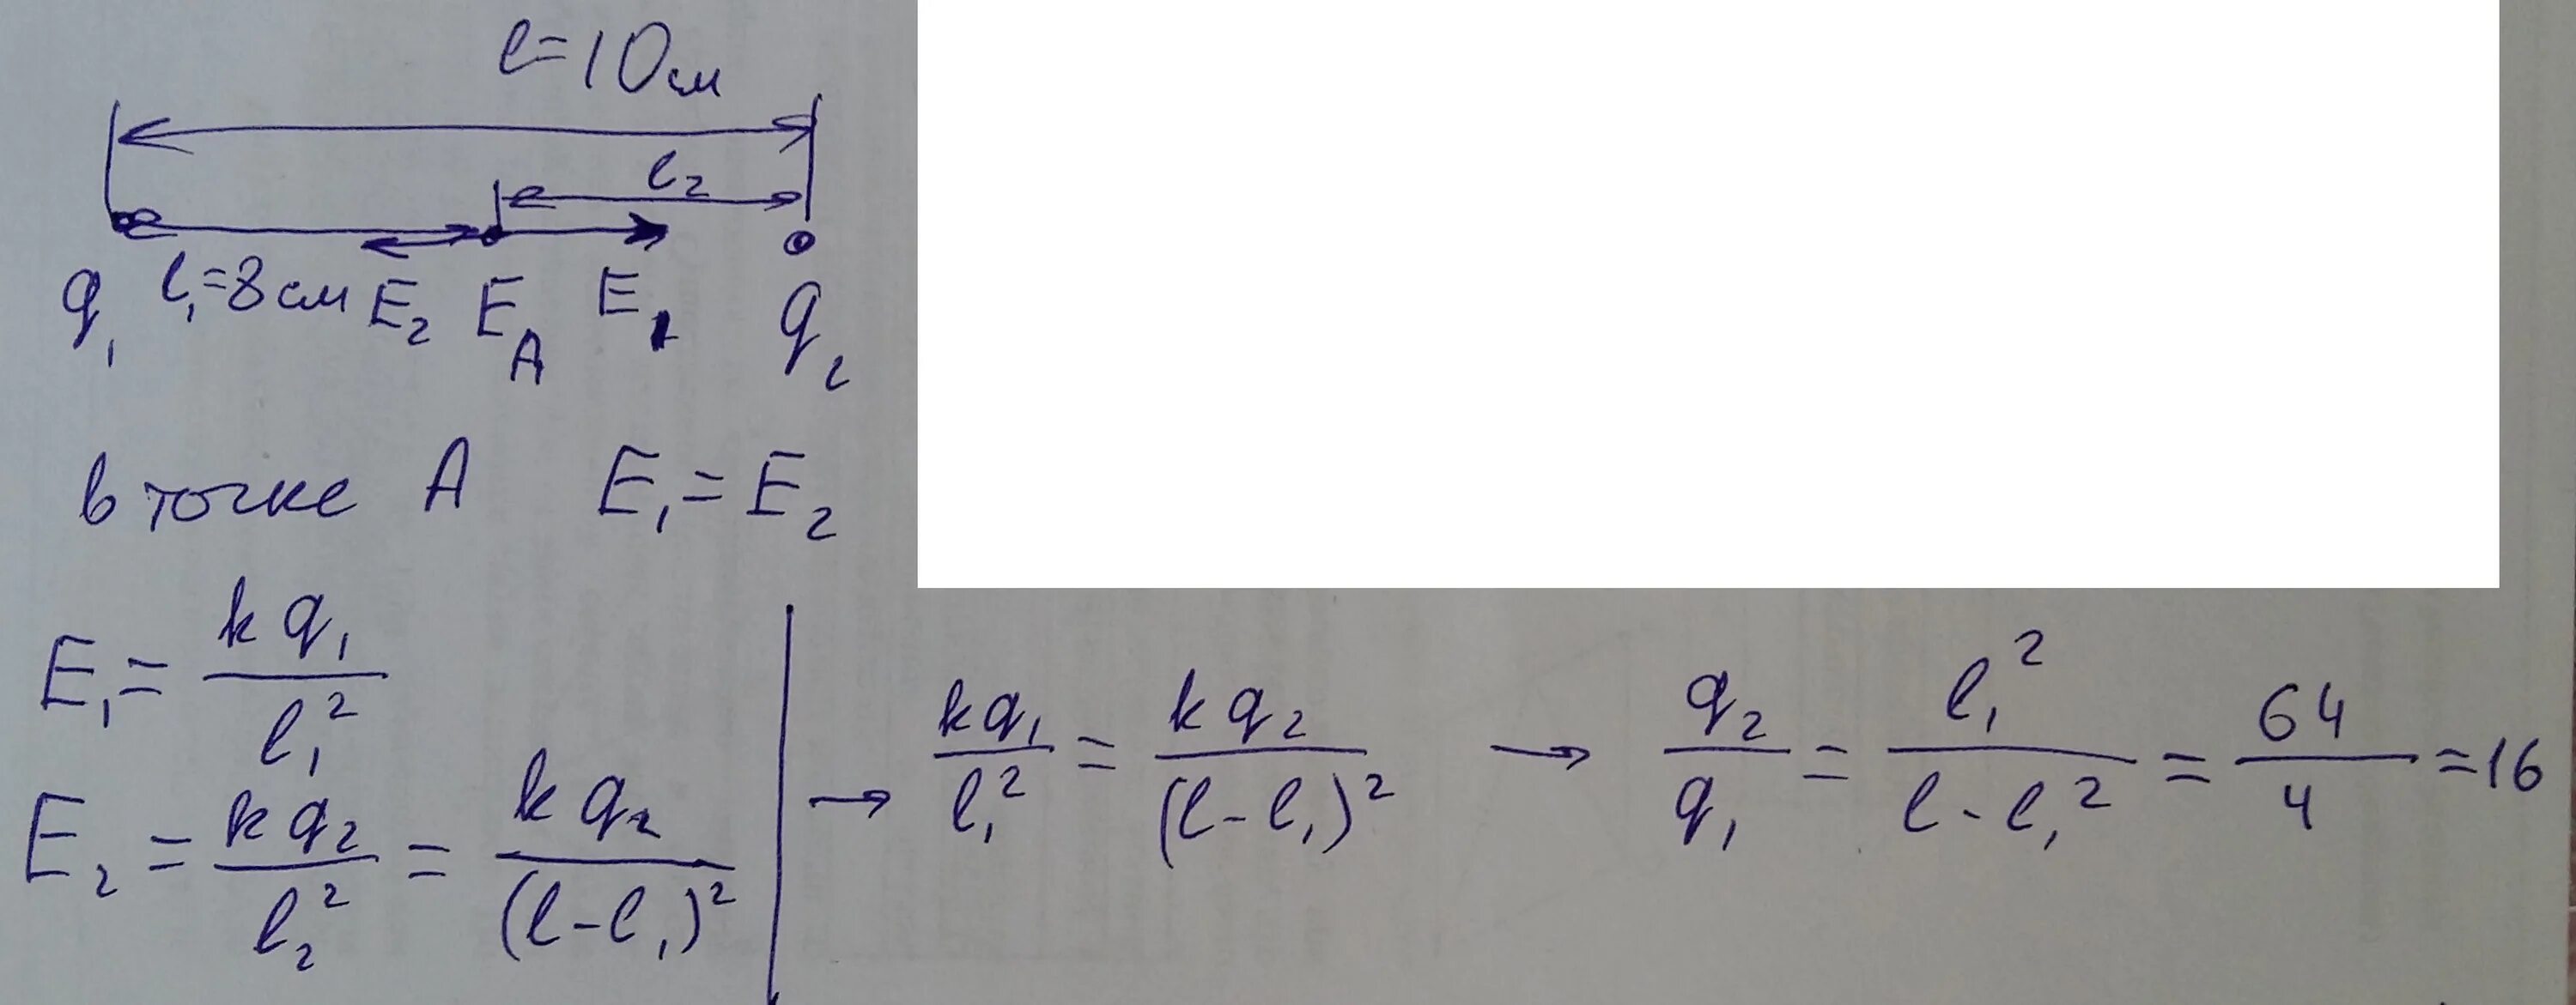 l=10см
l₂
q₁ l₁=8см E₂ E_A E₁ q₂
в точке A E₁=E₂
E₁ = kq₁/l₁²
E₂ = kq₂/l₂² = kq₂/(l-l₁)²
→ kq₁/l₁² = kq₂/(l-l₁)² → q₂/q₁ = l₁²/l-l₁² = 64/4 =16